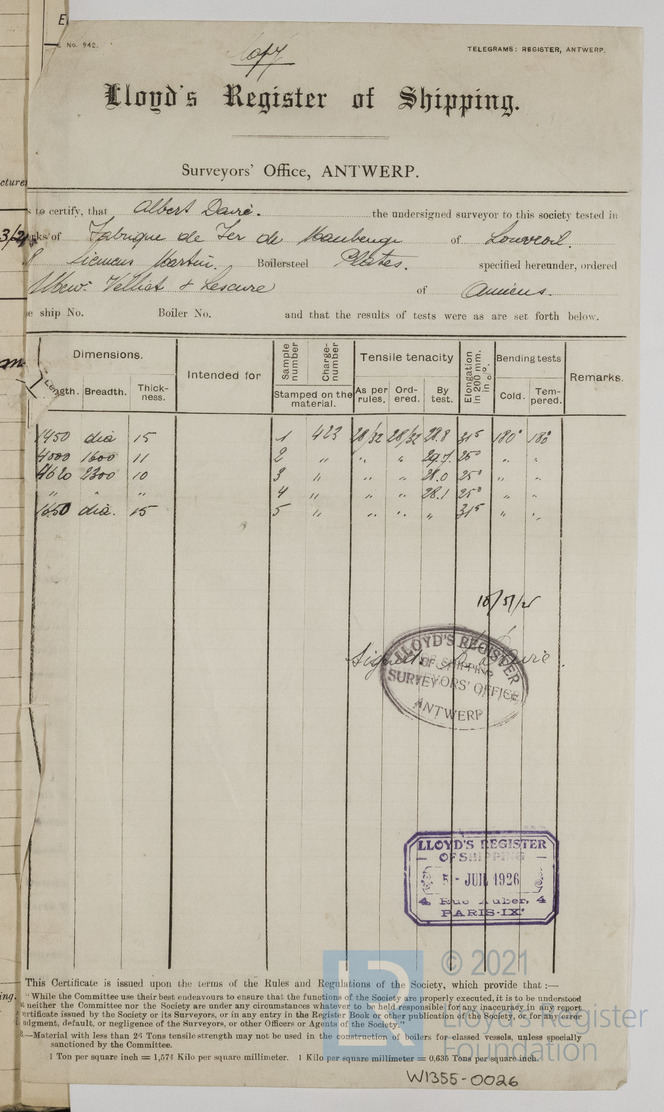 No. 942.
Copy
TELEGRAMS: REGISTER, ANTWERP.
Lloyd's Register of Shipping.
Surveyors' Office, ANTWERP.
s to certify, that Albert Davié. the undersigned surveyor to this society tested in
rks of Fabrique de Fer de Maubeuge of Louvroil.
Siemens Martin. Boilersteel Plates. specified hereunder, ordered
Velliat & Lescure of Amiens.
e ship No. Boiler No. and that the results of tests were as are set forth below.
Dimensions. Intended for Sample number Charge-number Tensile tenacity Elongation in 200 mm. in %. Bending tests Remarks.
Length. Breadth. Thick-ness. Stamped on the material. As per rules. Ord-ered. By test. Cold. Tem-pered.
1450 dia 15 1 423 28/32 28/32 28.8 31⁵ 180° 180°
4000 1600 11 2 " " " 29.7 25⁰ " "
4620 2300 10 3 " " " 28.0 25⁰ " "
" " " 4 " " " 28.1 25⁰ " "
1650 dia. 15 5 " " " " 31⁵ " "
18/5/26
Signed
LLOYD'S REGISTER
OF SHIPPING
SURVEYORS' OFFICE
ANTWERP
LLOYD'S REGISTER
OF SHIPPING
5 - JUIL 1926
4 Rue Auber, 4
PARIS-IXe
This Certificate is issued upon the terms of the Rules and Regulations of the Society, which provide that :—
"While the Committee use their best endeavours to ensure that the functions of the Society are properly executed, it is to be understood
neither the Committee nor the Society are under any circumstances whatever to be held responsible for any inaccuracy in any report
ertificate issued by the Society or its Surveyors, or in any entry in the Register Book or other publication of the Society, or, for any error
dgment, default, or negligence of the Surveyors, or other Officers or Agents of the Society."
—Material with less than 26 Tons tensile strength may not be used in the construction of boilers for classed vessels, unless specially
sanctioned by the Committee.
1 Ton per square inch = 1,574 Kilo per square millimetre. 1 Kilo per square millimetre = 0,635 Tons per square inch.
© 2021
Lloyd's Register
Foundation
W1355-0026